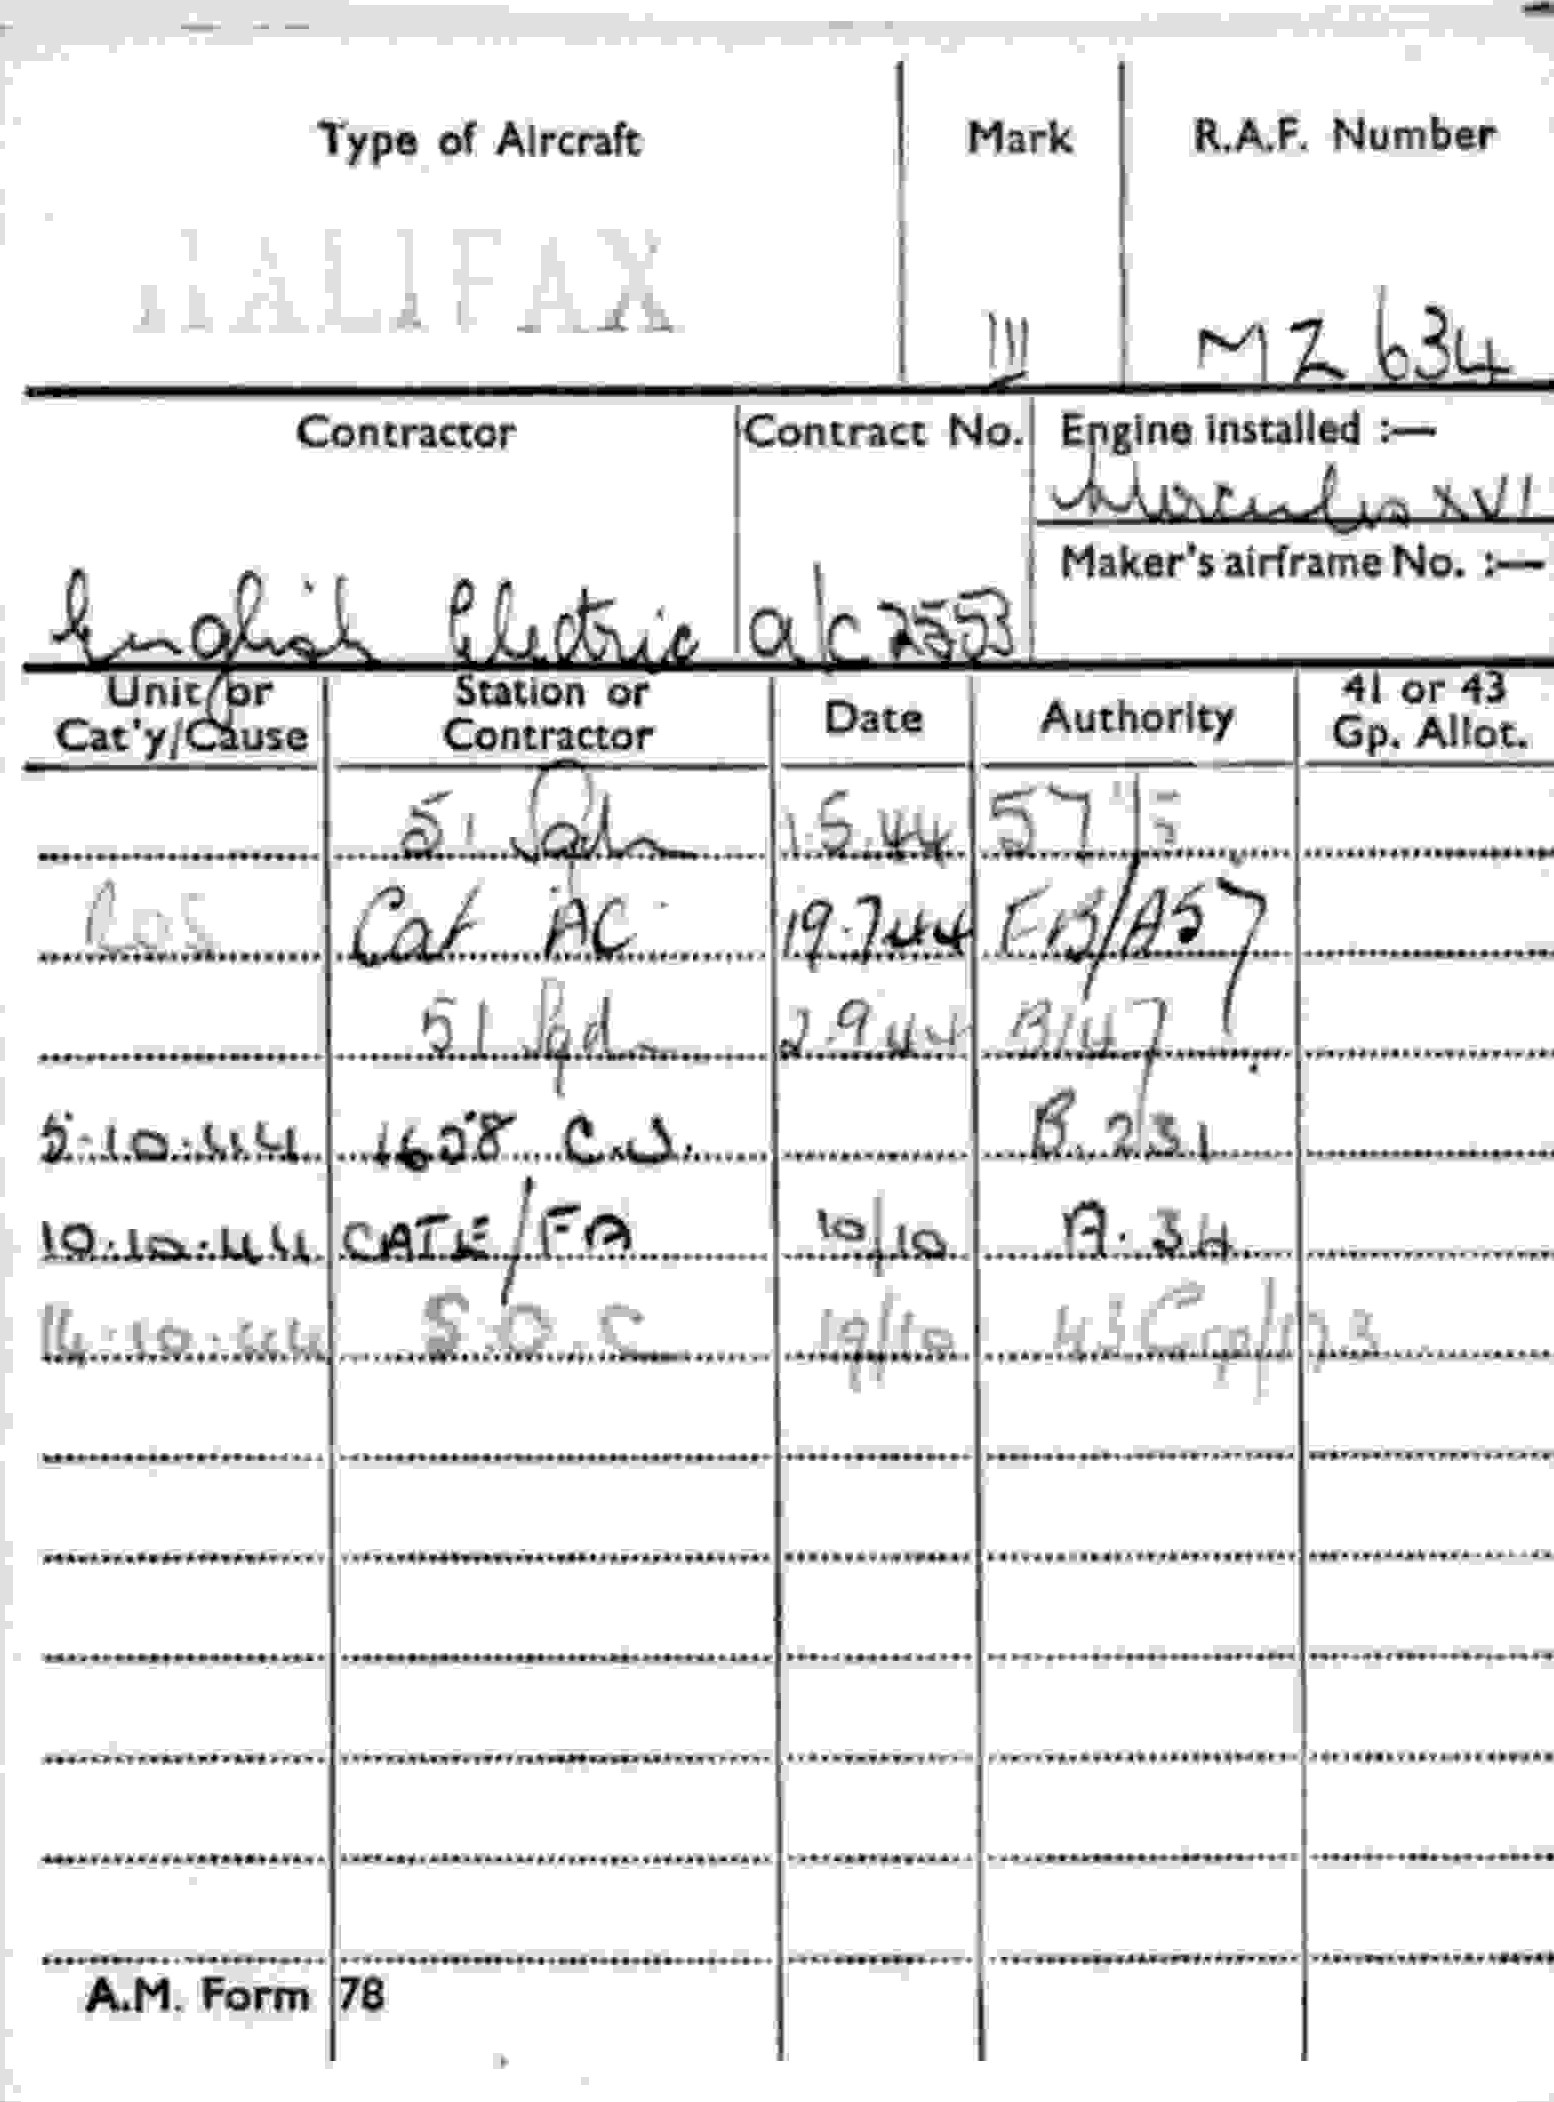 Type of Aircraft Mark R.A.F. Number
HALIFAX III MZ 634
Contractor Contract No. Engine installed :—
Hercules XVI
Maker's airframe No. :—
English Electric a/c 2553
Unit or Cat'y/Cause Station or Contractor Date Authority 41 or 43 Gp. Allot.
51 Sqdn 1.5.44
Cat AC 19.7.44 EB/A57
51 Sqdn 2.9.44 B147
5.10.44 1658 C.U. B.231
10.10.44 CATE/FA 10/10 A.34
14.10.44 S.O.C 19/10 43 Gp/
A.M. Form 78